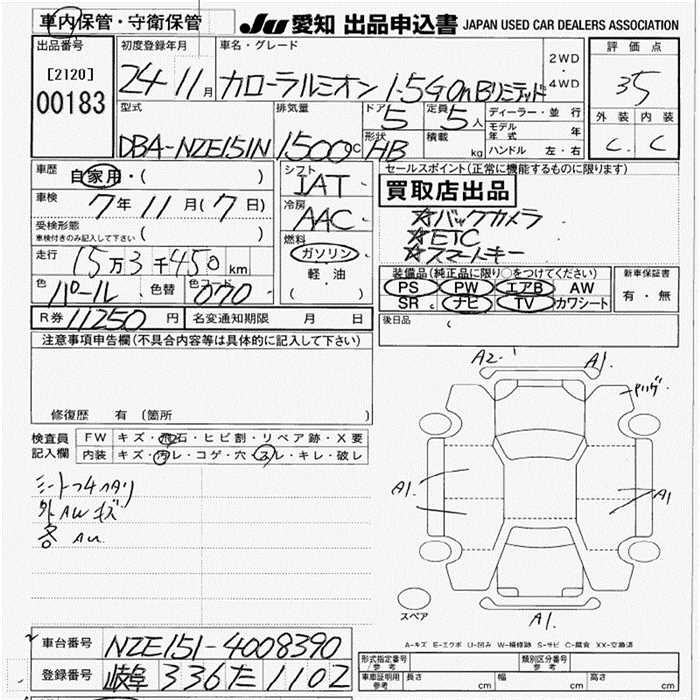 車内保管・守衛保管
JU 愛知 出品申込書 JAPAN USED CAR DEALERS ASSOCIATION
出品番号
[2120]
00183
初度登録年月
24 11月
車名・グレード
カローラルミオン 1.5G OnBリミテッド
2WD
・
4WD
評価点
3.5
外装 内装
C C
型式
DBA-NZE151N
排気量
1500cc
ドア
5
定員
5人
形状
HB
積載
kg
ディーラー・並行
モデル年式 年
ハンドル 左・右
車歴
自家用・( )
車検
7年11月(7日)
受検形態
車検付きのみ記入して下さい ( )
走行
15万3千450km
色
パール
色替
色コード
070
シフト
IAT
冷房
AAC
燃料
ガソリン
軽・油
( )
セールスポイント(正常に機能するものに限ります)
買取店出品
☆バックカメラ
☆ETC
☆スマートキー
装備品(純正品に限り○をつけてください)
PS PW エアB AW
SR ナビ TV カワシート
新車保証書
有・無
後日品
R券 11250円 名変通知期限 月 日
注意事項申告欄(不具合内容等は具体的に記入して下さい)
修復歴 有 (箇所 )
検査員記入欄
FW キズ・飛石・ヒビ割・リペア跡・X要
内装 キズ・汚レ・コゲ・穴・スレ・キレ・破レ
外AWキズ
各A1.
A2 A1.
A1.
A1
A1.
スペア
A-キズ E-エクボ U-凹み W-補修跡 S-サビ C-腐食 XX-交換済
車台番号 NZE151-4008390
登録番号 岐阜 336 た 1102
形式指定番号/参考
類別区分番号/参考
車庫証明用参考 長さ cm 幅 cm 高さ cm